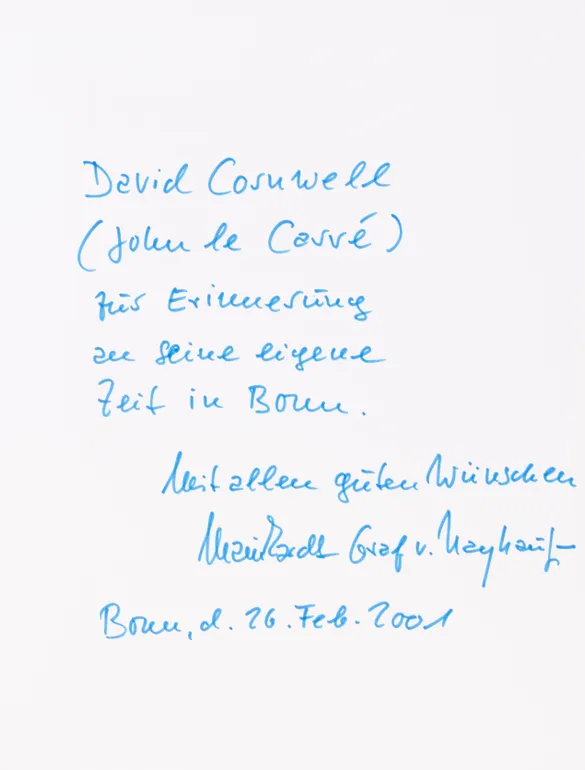 David Cornwell
(John le Carré)
zur Erinnerung
an seine eigene
Zeit in Bonn.
Mit allen guten Wünschen
Mainhardt Graf v. Nayhauß-
Bonn, d. 26. Feb. 2001